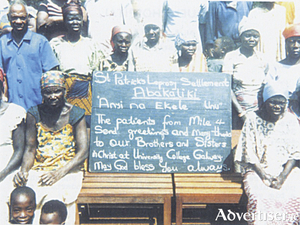 St Patricks Leprosy Settlement
Abakaliki
Ansi na Ekele Unu
The patients from Mile 4
Send greetings and many thanks
to our Brothers and Sisters
in Christ at University College Galway
May God bless you always
Advertiser